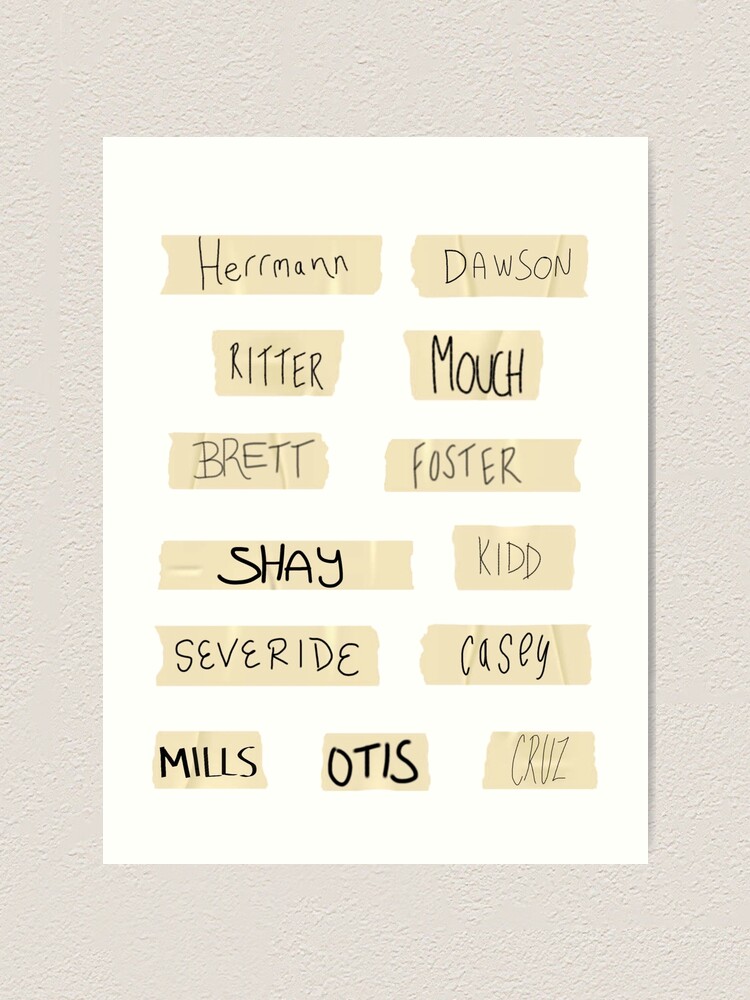 Herrmann DAWSON
RITTER MOUCH
BRETT FOSTER
SHAY KIDD
SEVERIDE casey
MILLS OTIS CRUZ